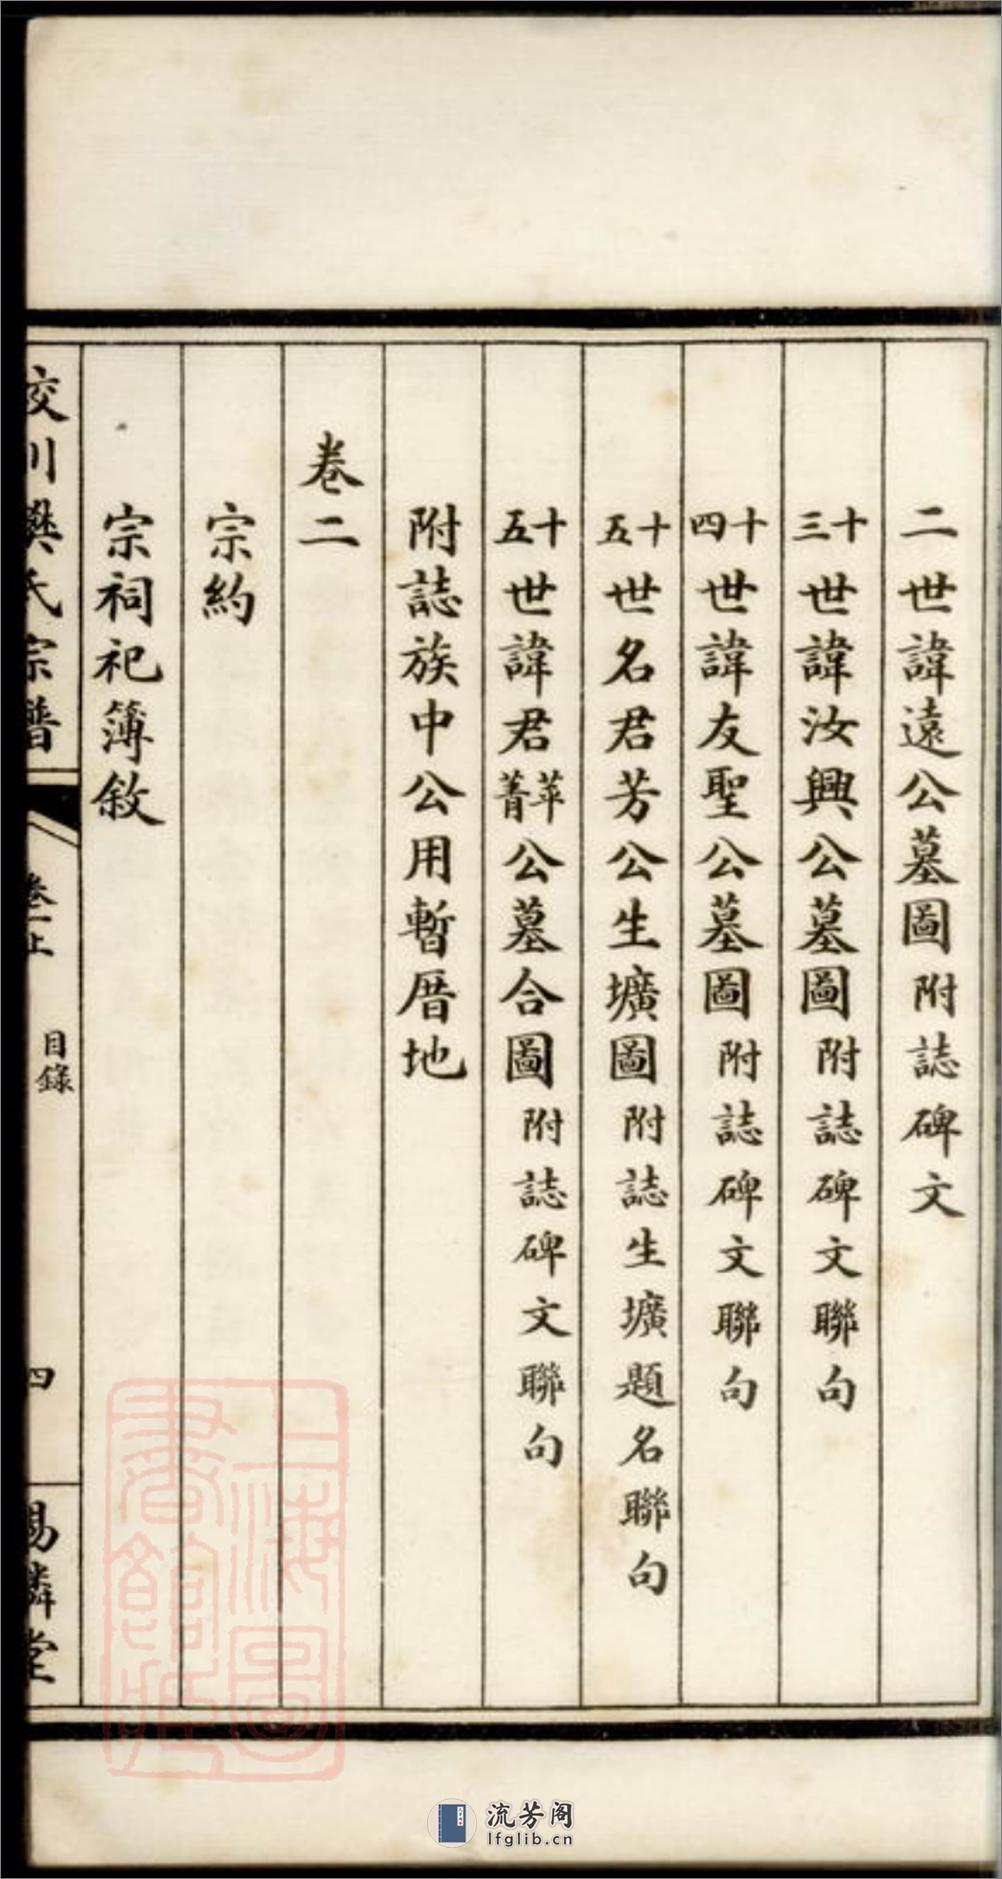 二世諱遠公墓圖附誌碑文
十三世諱汝興公墓圖附誌碑文聯句
十四世諱友聖公墓圖附誌碑文聯句
十五世名君芳公生壙圖附誌生壙題名聯句
十五世諱君苹菁公墓合圖附誌碑文聯句
附誌族中公用暫厝地
卷二
宗約
宗祠祀簿敘
川樊氏宗譜
卷上
目錄
四
錫麟堂
上海圖書館藏
流芳阁
lfglib.cn